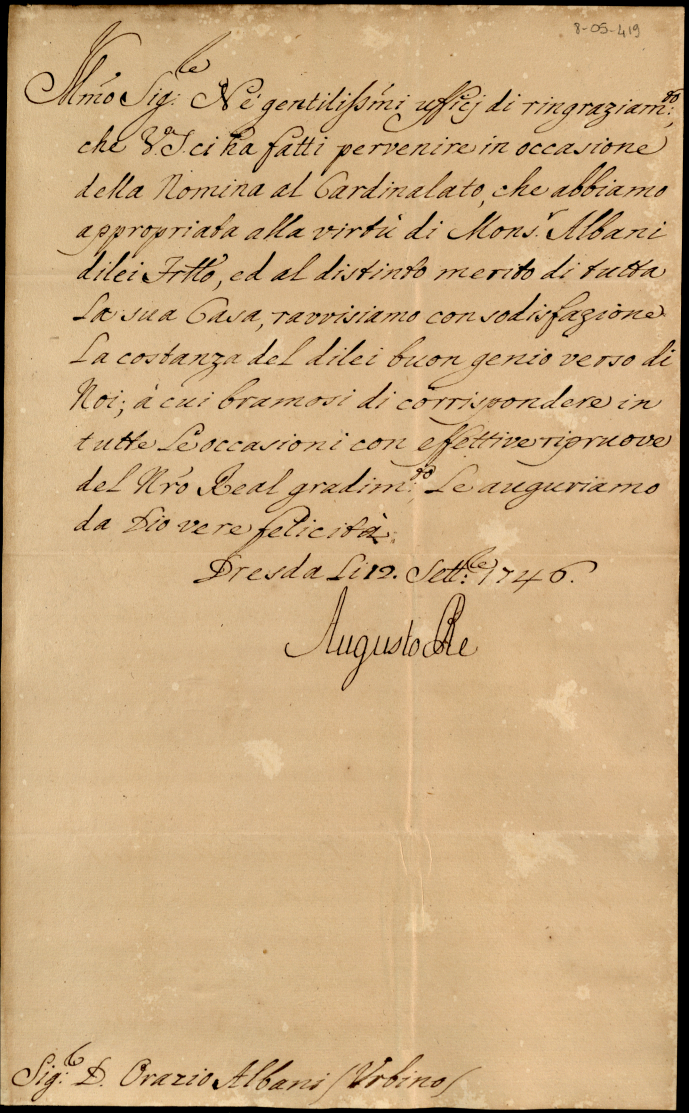 8-05-419
Ill.mo Sig.le Ne' gentilissmi ufficj di ringraziam.to,
che V.a S. ci ha fatti pervenire in occasione
della Nomina al Cardinalato, che abbiamo
appropriata alla virtù di Mons.r Albani
di lei Frtto, ed al distinto merito di tutta
La sua Casa, ravvisiamo con sodisfazione
La costanza del di lei buon genio verso di
Noi; à cui bramosi di corrispondere in
tutte Le occasioni con effettive ripruove
del Nro Real gradim.to Le auguriamo
da Dio vere felicità.
Dresda Li 12. Sett.le 1746.
Augusto Re
Sig.le D. Orazio Albani (Urbino)